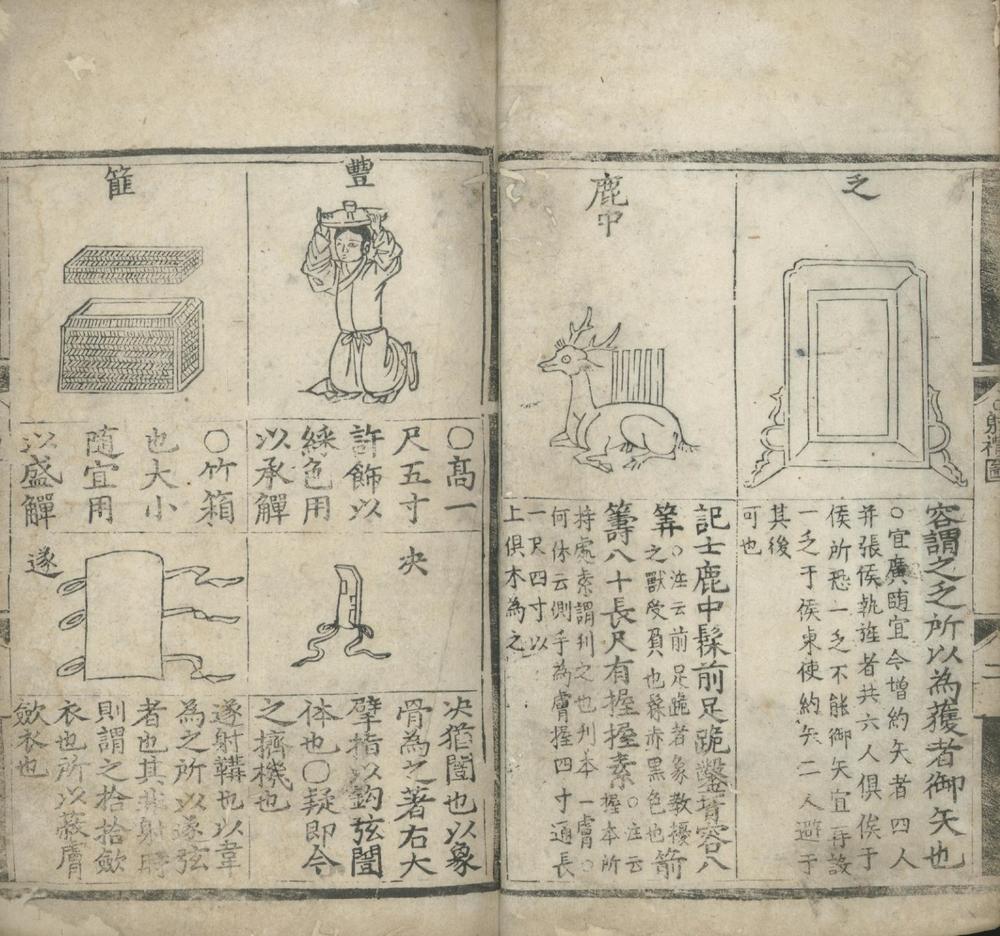 乏
容謂之乏所以為獲者御矢也
○宜廣随宜今增約矢者四人
并張侯執旌者共六人俱俟于
侯所恐一乏不能御矢宜再設
一乏于侯東使約矢二人避于
其後
可也
射禮圖
二
鹿中
記士鹿中髹前足跪鑿背容八
筭○注云前足跪者象教擾
之獸受負也髹赤黒色也箭
籌八十長尺有握握素○注云
握本所
持處素謂刋之也刋本一膚○
何休云側手為膚握四寸通長
一尺四寸以
上俱木為之
豐
○高一
尺五寸
許飾以
綵色用
以承觶
篚
○竹箱
也大小
随宜用
以盛觶
决
决猶闓也以象
骨為之著右大
擘指以鈎弦闓
体也○疑即今
之擠機也
遂
遂射韝也以韋
為之所以遂弦
者也其非射時
則謂之拾拾斂
衣也所以蔽膚
斂衣也